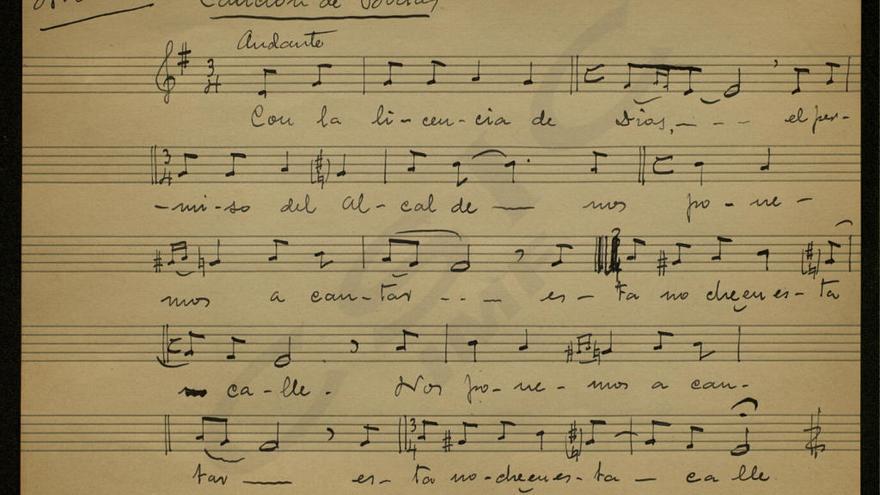 Canción de bodas
Andante
Con la li-cen-cia de Dios, - - - el per-
-mi-so del Al-cal de — nos po-ne-
mos a can-tar - - - es-ta noche en es-ta
ca-lle. Nos po-ne-mos a can-
tar — es-ta no-che en es-ta — ca lle